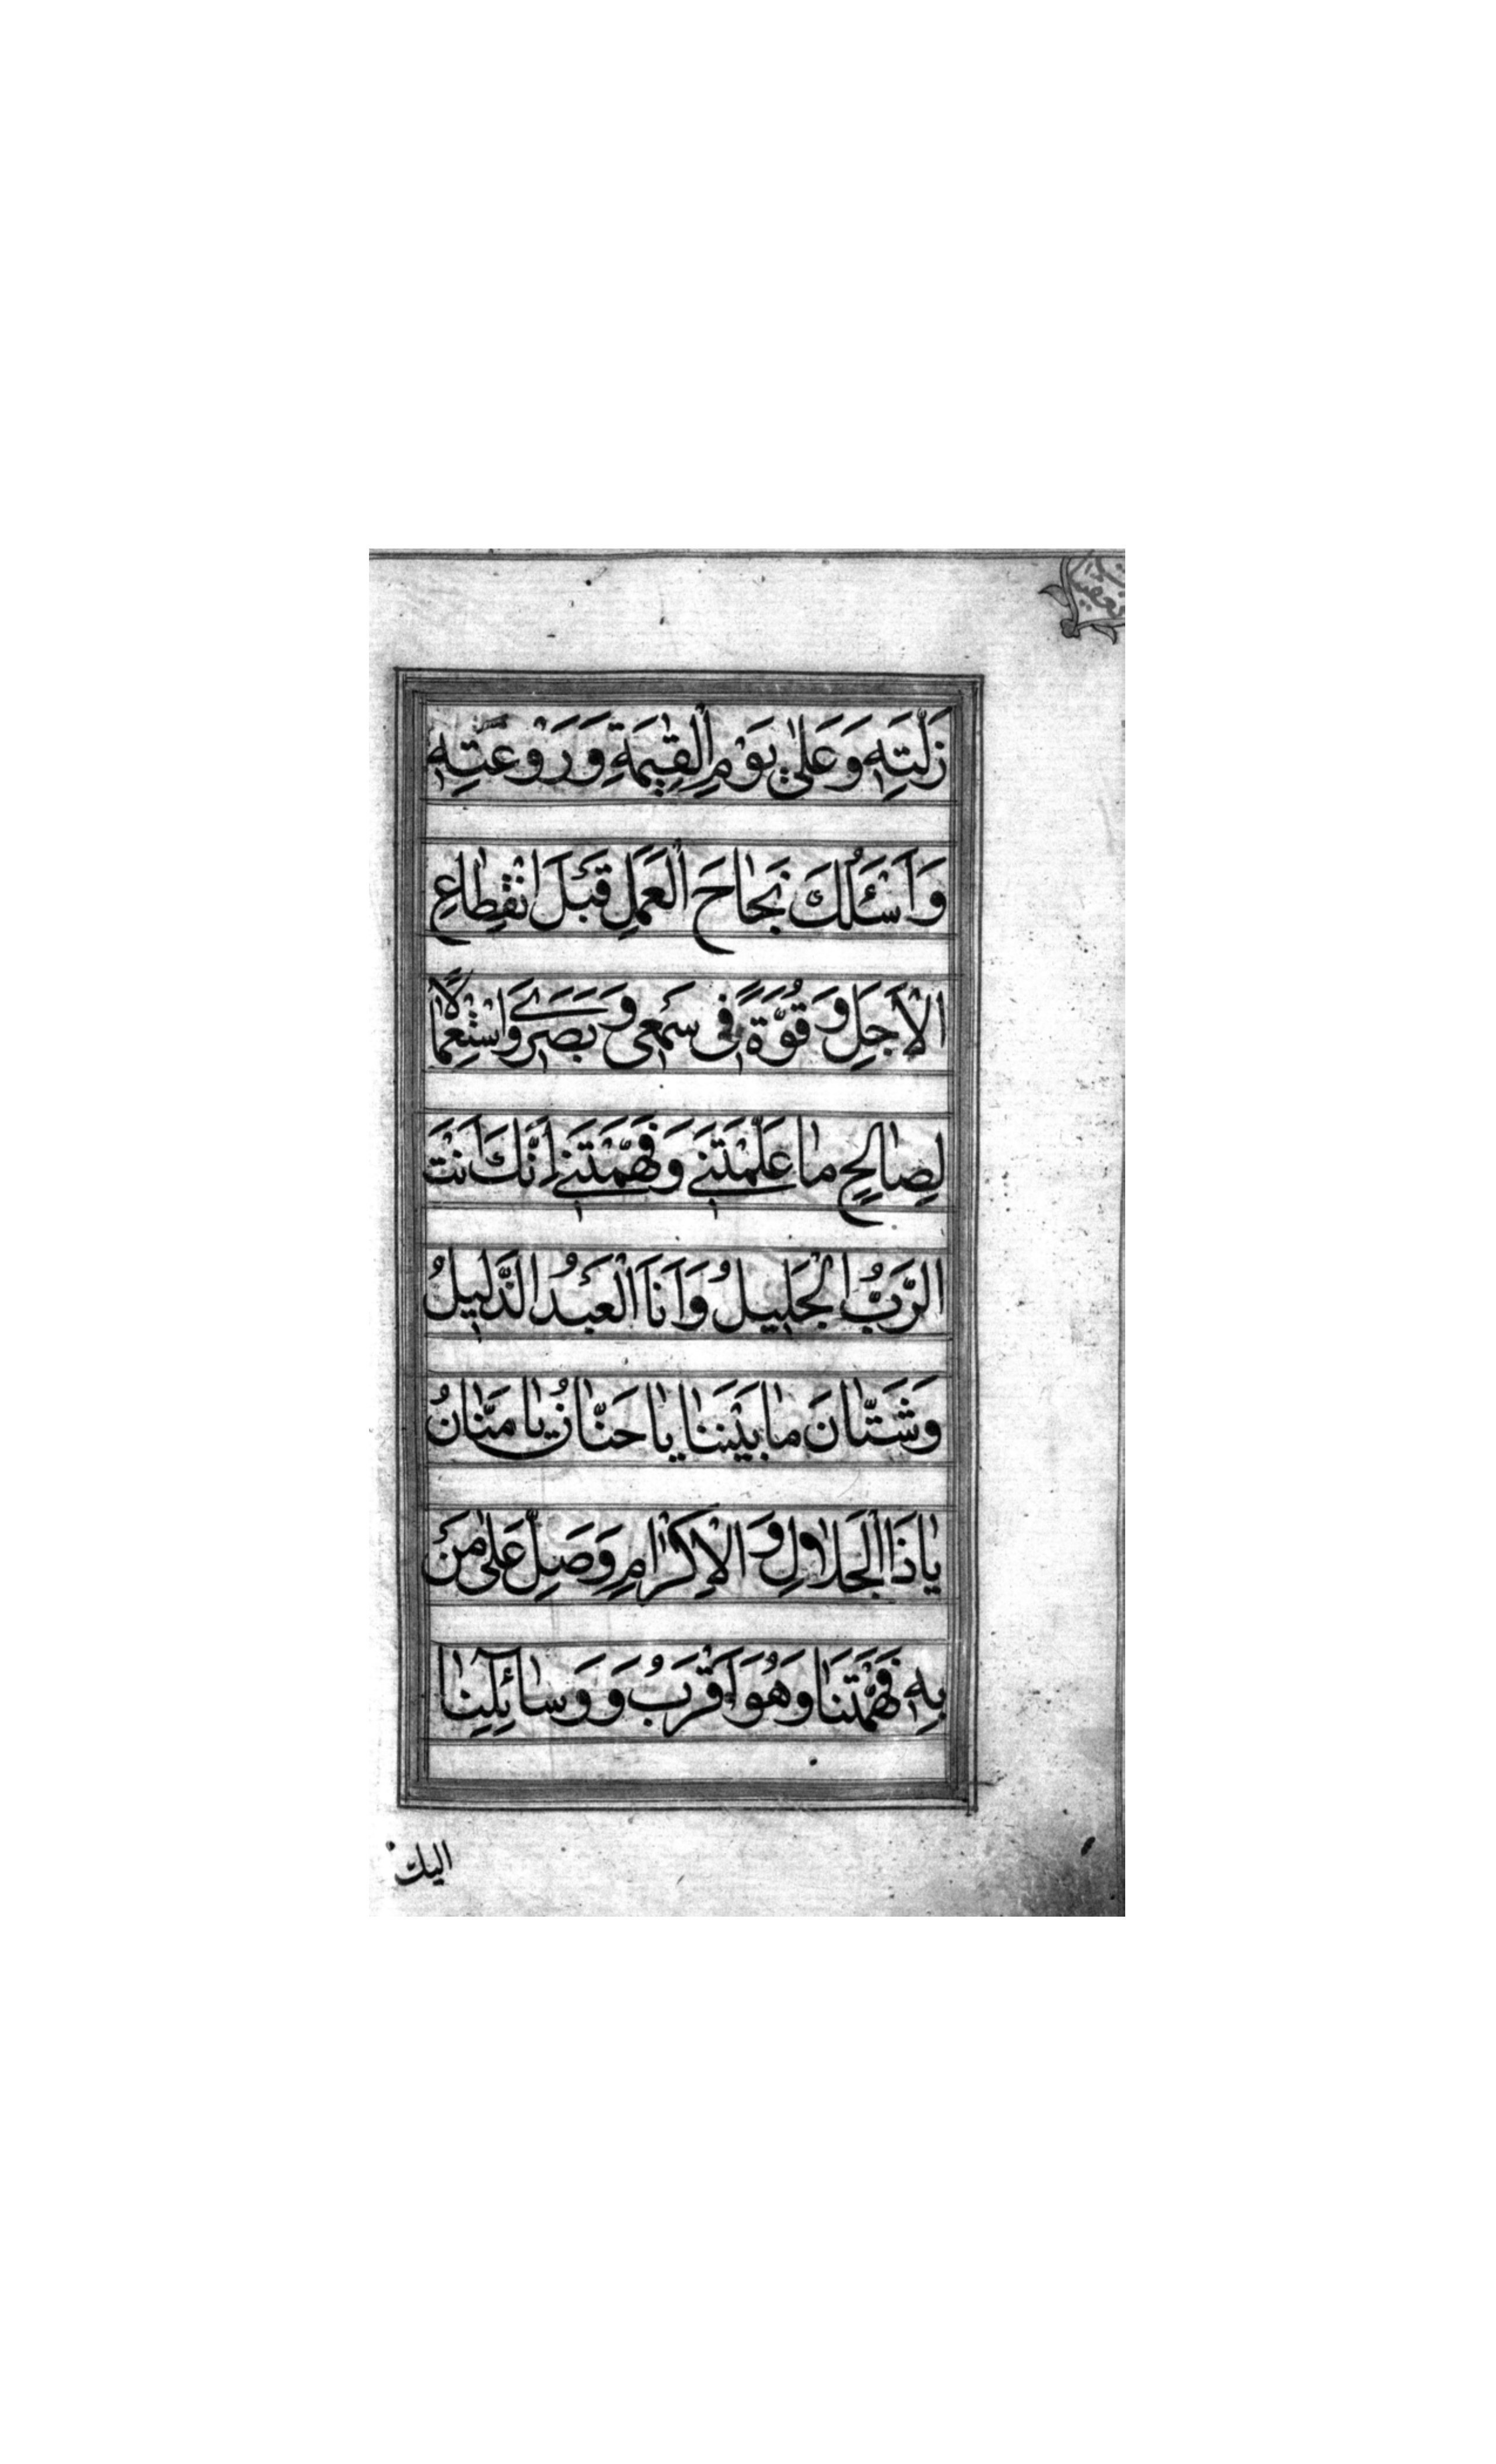 زَلَّتِهِ وَعَلٰى يَوْمِ الْقِيٰمَةِ وَرَوْعَتِهِ
وَاَسْئَلُكَ نَجٰاحَ الْعَمَلِ قَبْلَ انْقِطٰاعِ
الْاَجَلِ وَقُوَّةً فِى سَمْعِى وَبَصَرِى وَاسْتِعْمٰالًا
لِصٰالِحِ مٰا عَلَّمْتَنِى وَفَهَّمْتَنِى اِنَّكَ اَنْتَ
الرَّبُّ الْجَلِيلُ وَاَنَا الْعَبْدُ الذَّلِيلُ
وَشَتّٰانَ مٰا بَيْنَنٰا يٰا حَنّٰانُ يٰا مَنّٰانُ
يٰا ذَا الْجَلٰالِ وَ الْاِكْرٰامِ وَصَلِّ عَلٰى مَنْ
بِهِ فَهَّمْتَنٰا وَهُوَ اَقْرَبُ وَ وَسٰائِلِنٰا
اليك